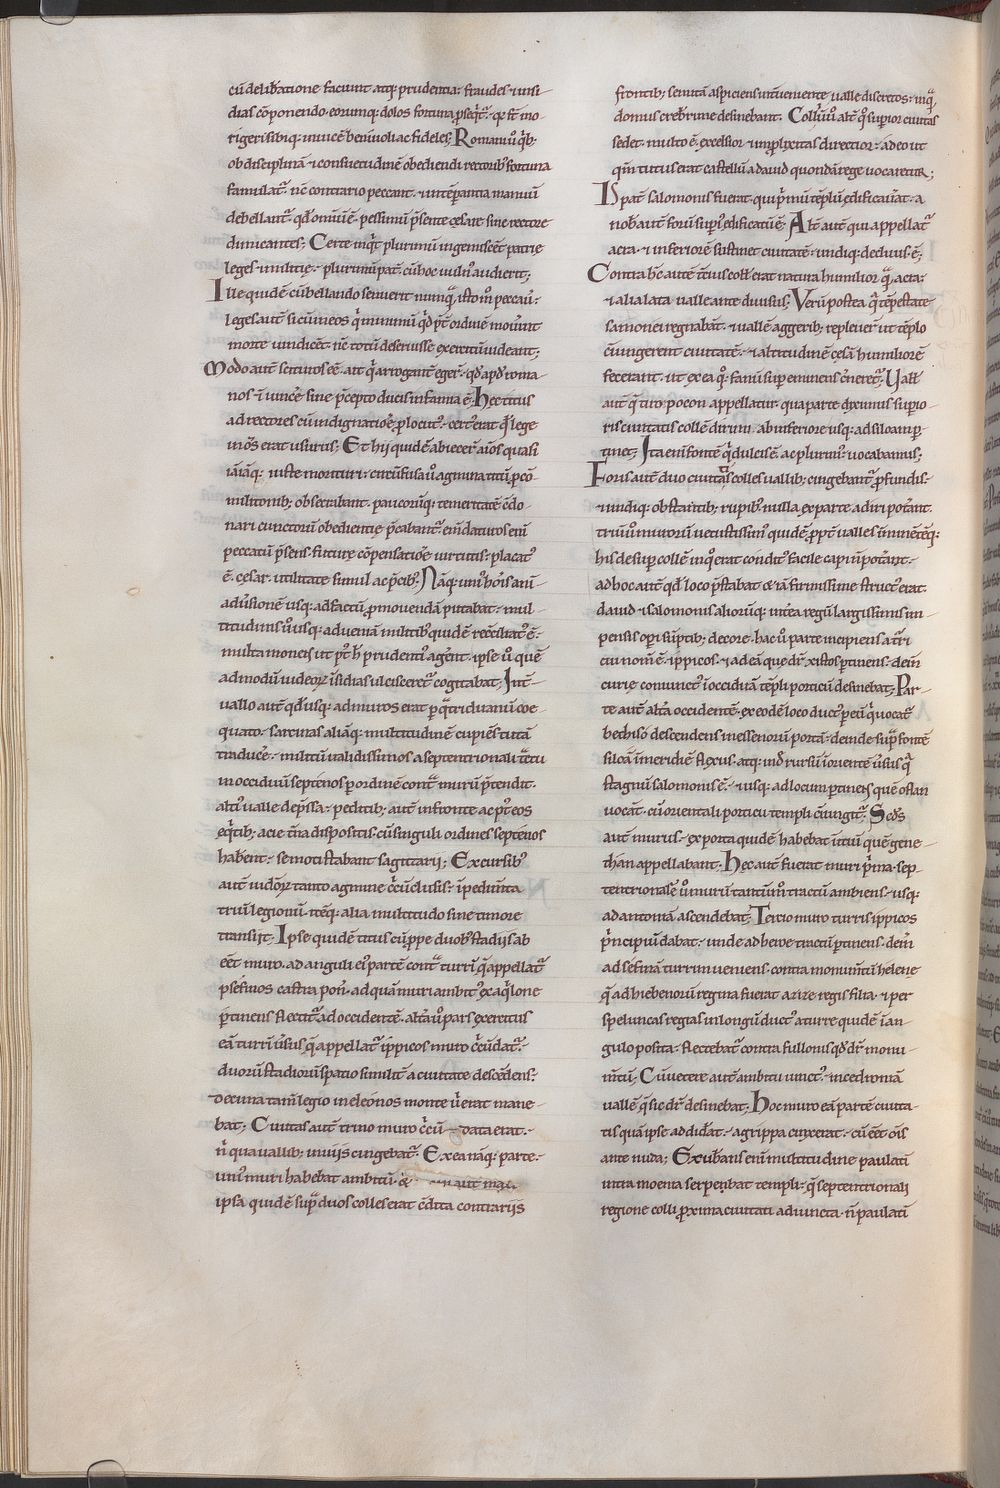 cū delibatione faciunt atq; prudentia; fraudes ⁊ insi-
dias cōponendo. eorumq; dolos fortuna
rigeri sibiq; inuicē beniuoli ac fideles; Romani ū qb;
ob disciplinā ⁊ consuetudinē obediendi rectorib; fortuna
famulat̄. nc̄ contrario peccant. ⁊ intēperantia manuū
debellant̄. qd̄ omniū ē pessimū p̄sente cesare sine rectore
dimicantes; Certe inqt̄ plurimū ingemiscent patrię
leges militię. plurimū pat̄. cū hoc uuln̄ audierit;
Ille quidē cū bellando senuerit nunq̄, isto m̄ peccauit.
leges aut̄ si cū in eos q̄ minimū qd̄ p̄t̄ ordinē mouint
morte uindicēt. nc̄ totū deseruisse exercitū uideant;
Modo aut̄ se nt̄uros eē. ait q̄ arrogant̄ eger̄. qd̄ apd̄ roma-
nos ⁊ uincē sine p̄cepto ducis infamia ē. Hec titus
ad rectores cū indignatiōe plocut̄. cert̄ erat q̄ lege
in oēs erat usurus; Et hij quidē abiecer̄ aīos quasi
iāiāq; iuste morituri. circūfusa ū agmina titū p̄ co-
militonib; obsecrabant. paucorūq; temeritatē cōdo-
nari cunctorū obedientię p̄cabant̄. emdaturos enī
peccatū p̄sens. futurę cōpensatiōe uirtutis. placat̄
ē. cesar. utilitate simul ac p̄cib; Nāq; uni̇ hoīs anī-
aduersionē usq; ad factū p̄mouendā putabat. mul-
titudinis ū usq; ad ueniā militib; quidē recēsiliat̄ ē.
multa monens ut p̄t h̄ prudenti̇ agent. ipse ū quē
admodū iudeoꝝ īsidias ulcisceret̄ cogitabat; Int̄-
uallo aut̄ qd̄ usq; ad muros erat p̄ q̄triduanū coe-
quato. sarcinas aliāq; multitudinē cupiēs tutā
traducē. militū ualidissimos a septentrionali
in occiduū septenos p̄ ordinē cont̄ murū p̄tendit.
alti̇ ualle dep̄ssa. peditib; aut̄ in fronte ac p̄t̄ eos
eq̄tib; acie t̄na dispositis. cū singuli ordines septenos
habent. semoti stabant sagittarij; Excursib;
aut̄ iudeoꝝ tanto agmine c̄cūclusis. īpedimta
triū legionū. rēq; alia multitudo sine timore
transijt; Ipse quidē titus cū p̄pe duob; stadijs ab
eēt muro. ad anguli ei̇ partē cont̄ turrī q̄ appellat̄
psefinos castra pon̄. ad quā muri ambit̄ ex aq̄lone
p̄tinens flectit̄ ad occidentē. alta ū pars exercitus
eā turrī ūsus q̄ appellat̄ ippicos muro c̄cūdat̄.
duorū stadiorū spatio similit̄ a ciuitate descēdens.
decuma tam̄ legio in eleōnos monte ū erat mane-
bat; Ciuitas aut̄ trino muro c̄cū data erat.
n̄ qua uallib; inuijs cingebat̄. Ex ea nāq; parte.
uni̇ muri habebat ambitū. &
ipsa quidē sup̄ duos colles erat cōdita contrariis
frontib; semitā aspiciens int̄ueniente ualle discretos. in q̄
domus crebrime desinebant. Colliū ū alt̄ q̄ superior ciuitas
sedet. multo ē excelsior ⁊ in p̄lixitas directior. adeo ut
qm̄ tutus erat castellū a dauid quondā rege uocaretur;
Is pat̄ salomonis fuerat. qui p̄mū tēplū edificauit. a
nob̄ aut̄ forū superi̇ edificatū ē; Alt̄ aut̄ qui appellat̄
acra. ⁊ inferiorē sustinet ciuitatē. undiq; decliuis ē;
Contra hc̄ autē t̄cius coll̄ erat natura humilior q̄ acra.
⁊ alia lata ualle ante diuisus; Verū postea q̄ tēpestate
samonei regnabāt. ⁊ uallē aggerib; repleuer̄ ut tēplo
c̄iungerent ciuitatē. ⁊ altitudinē cęsā humiliorē
fecerant. ut ex ea q̄ fanū superemineret; Vall̄
aut̄ q̄ tiropocon appellatur. qua parte diximus supio-
ris ciuitatis collē dirimi ab inferiore usq; ad siloam p̄-
tinet; Ita enī fontē q̄ dulcis ē ac plurim̄. uocabamus;
Foris aut̄ duo ciuitatis colles uallib; cingebant̄ p̄fundis.
⁊ undiq; obstantib; rupib; nulla ex parte adiri poterant.
triū ū murorū uetustissim̄ quidē. p̄pt̄ ualles īminētēq;
his desup̄ collē in q̄ erat condit̄ facile capi n̄ poterant.
ad hoc aut̄ qd̄ loco p̄stabat & iā firmissime struct̄ erat.
dauid ⁊ salomonis aliorūq; int̄ea regū largissimis im-
pensis operi sūptib; decore. hac ū parte incipiens a t̄ri
cui nom̄ ē ippicos. ⁊ ad eā que dr̄ xistos ptinens. dein̄
curie comunct̄ ī occiduā tēpli porticū desinebat; Par-
te aut̄ alt̄a occidentē. ex eodē loco duct̄ per eū q̄ uocat̄
bethiso descendens in essenorū portā. deinde sup̄ fontē
siloā īmeridiē flexus. atq; ind̄ rursū ī orientē ūsus q̄
stagnū salomonis ē. ⁊ usq; ad locum ptinens quē oflan
uocāt. cū orientali porticu templi c̄iungit̄. Scd̄s
aut̄ murus. ex porta quidē habebat initiū quē gene-
than appellabant. Hec aut̄ fuerat muri p̄ma. sep-
tentrionalē ū murū tantūm̄ tractū ambiens. usq;
ad antoniā ascendebat; Tercio muro turris ippicos
p̄ncipiū dabat. unde ad borre tractū ptinens. dein̄
ad sefinā turrim ueniens. contra monumtū helene
q̄ adhiebenorū regina fuerat azize regis filia. ⁊ per
speluncas regias in longū duct̄ a turre quidē ī an-
gulo posita. flectebat̄ contra fullonis qd̄ dr̄ monu-
mtū; Cū uetere aut̄ ambitu iunct̄. in cedroniā
uallē q̄ sic dr̄ desinebat; Hoc muro eā partē ciuita-
tis quā ipse addidat̄. agrippa cinxerat. cū eēt oīs
ante nuda; Exuberans enī multitudine paulatī
intra moenia serpebat templi. q̄ septentrionali
regione colli p̄xima ciuitati adiuncta. n̄ paulatī